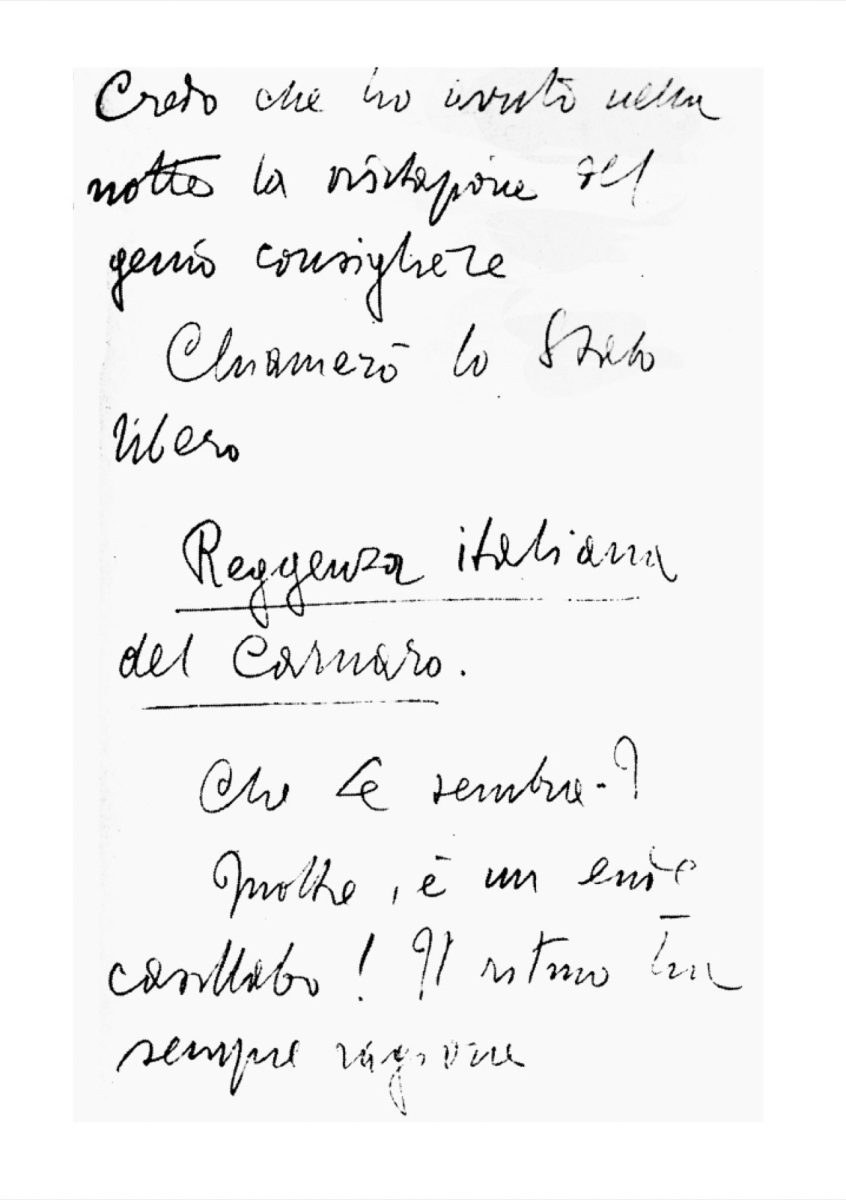 Credo che ho avuto nella
notte la visitazione del
genio consigliere
Chiamerò lo Stato
libero
Reggenza italiana
del Carnaro.
Che Le sembra?
Inoltre, è un ende
casillabo! Il ritmo ha
sempre ragione